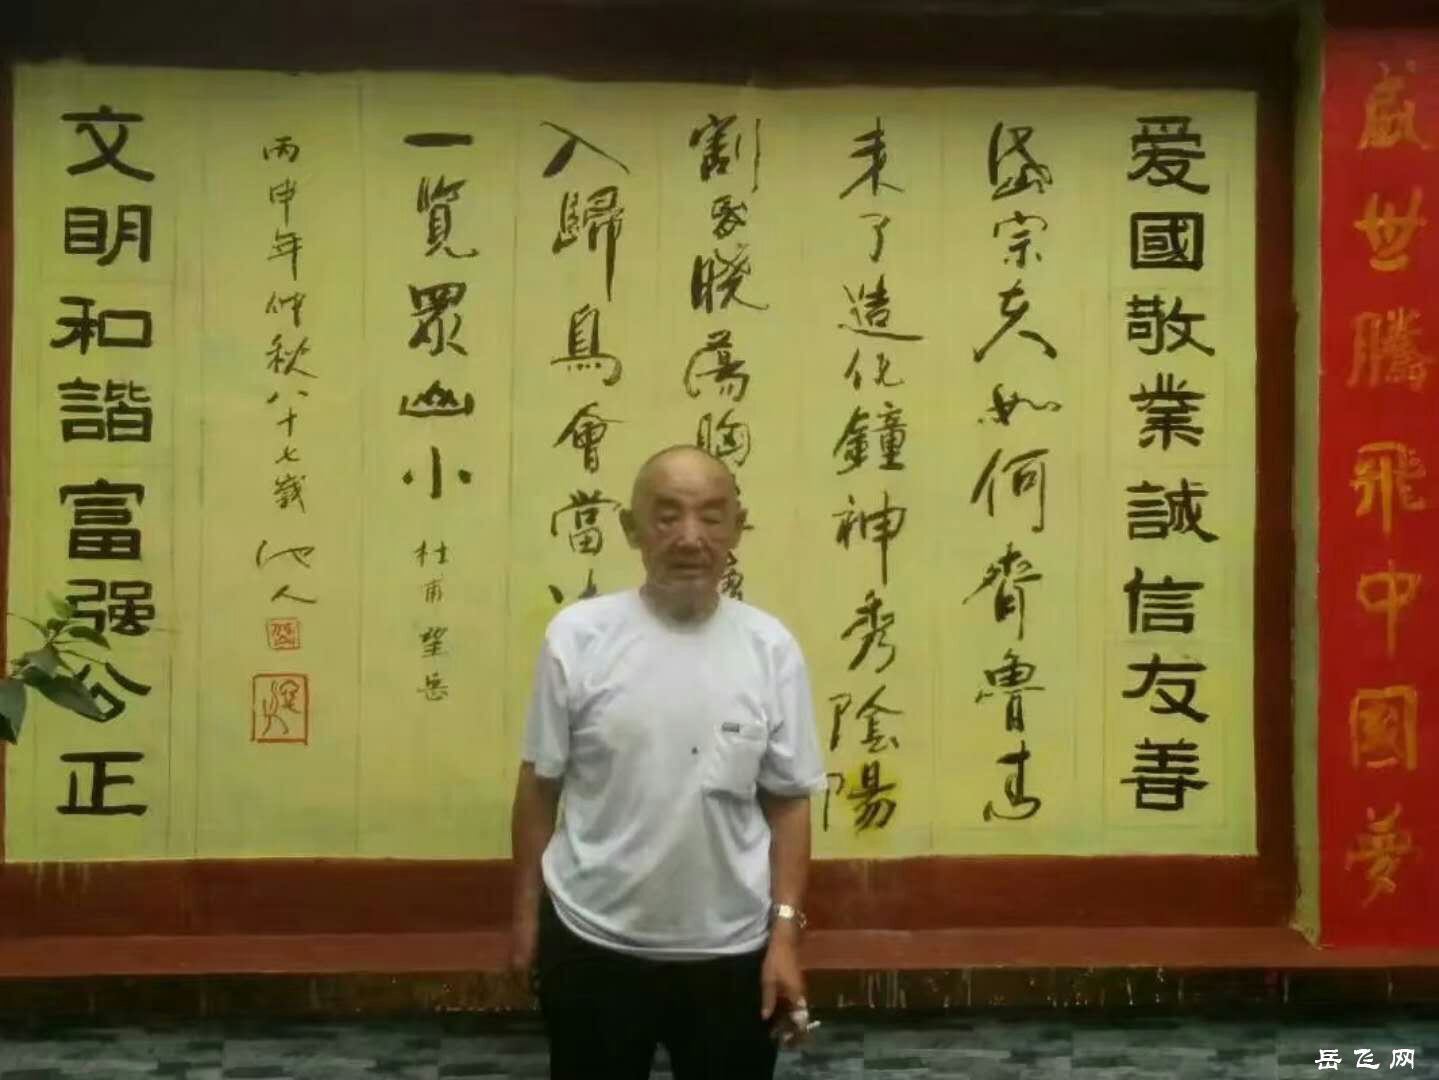 盛世騰飛中國夢
爱國敬業誠信友善
岱宗夫如何齊魯青
未了造化鐘神秀陰陽
割昏曉蕩胸
入歸鳥會當
一覽眾山小
杜甫望岳
丙申年仲秋八十七歲
池人
文明和諧富强公正
岳飞网